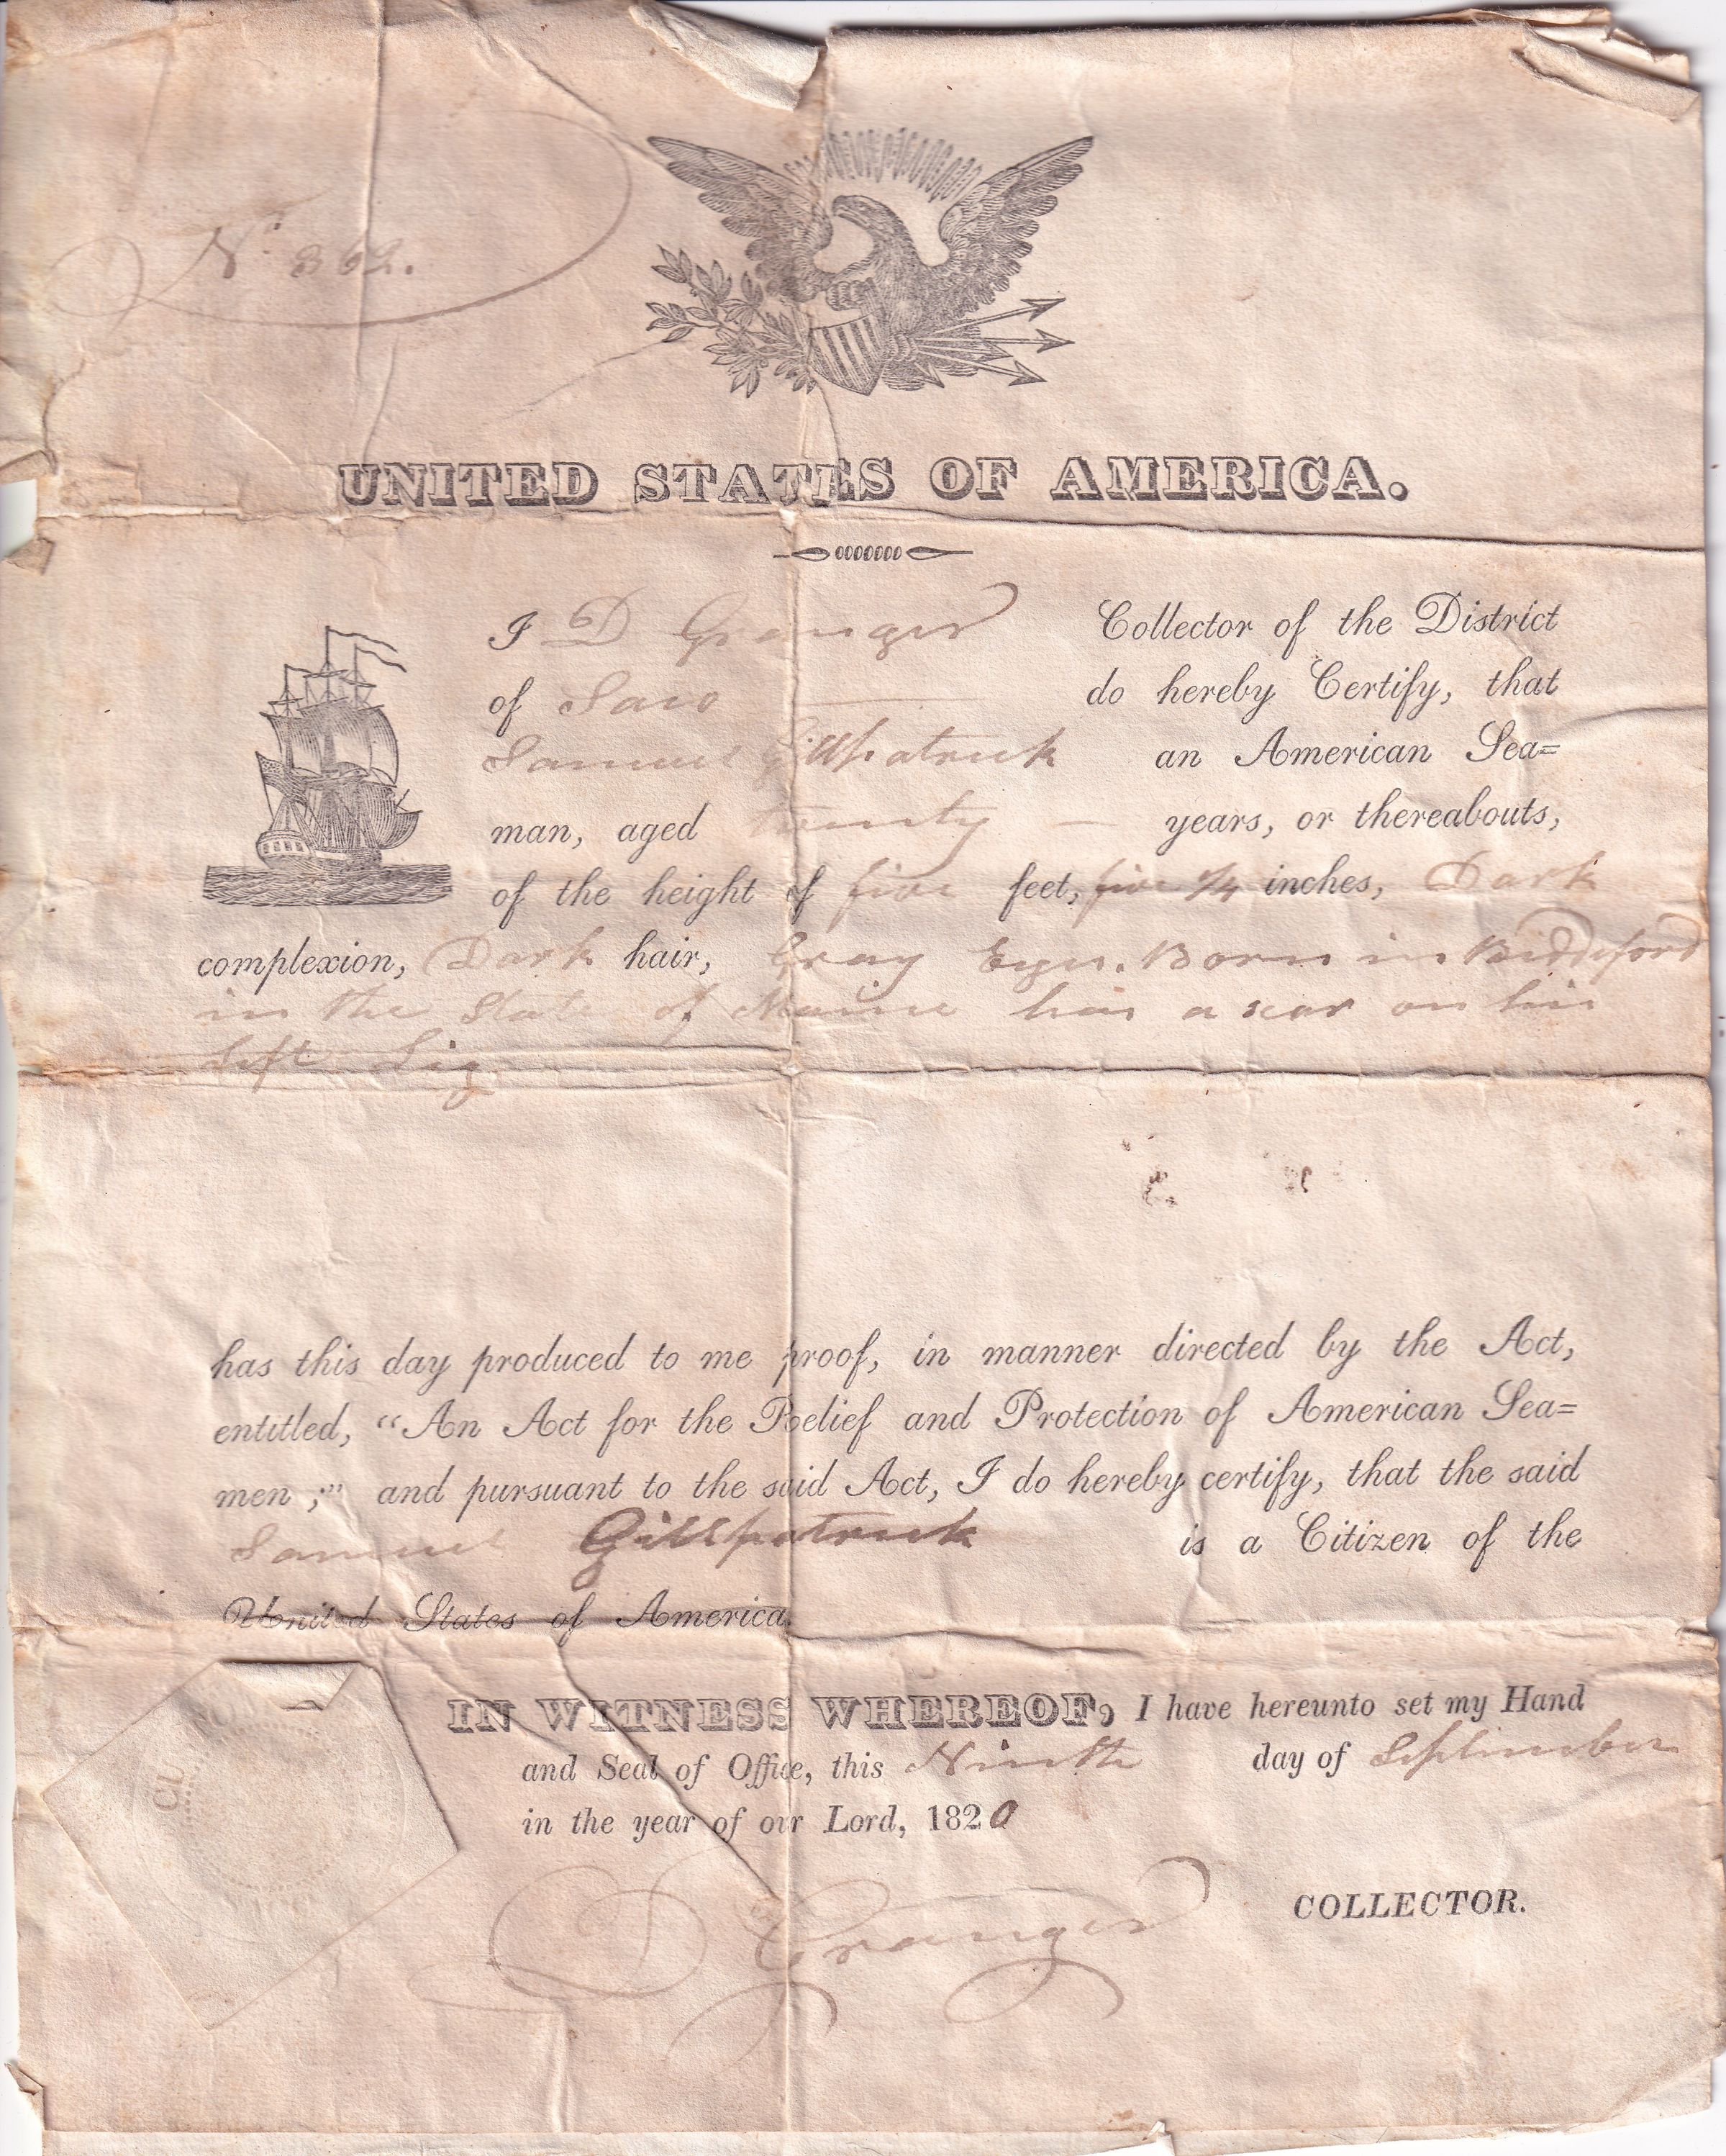 No. 362.
UNITED STATES OF AMERICA.
I D Granger Collector of the District
of Saco do hereby Certify, that
Samuel Gillpatrick an American Sea=
man, aged twenty years, or thereabouts,
of the height of five feet, five 3/4 inches, Dark
complexion, Dark hair, Gray Eyes. Born in Biddeford
in the State of Maine has a scar on his
Left Leg
has this day produced to me proof, in manner directed by the Act,
entitled, "An Act for the Relief and Protection of American Sea=
men;" and pursuant to the said Act, I do hereby certify, that the said
Samuel Gillpatrick is a Citizen of the
United States of America.
IN WITNESS WHEREOF, I have hereunto set my Hand
and Seal of Office, this Ninth day of September
in the year of our Lord, 1820
D Granger COLLECTOR.